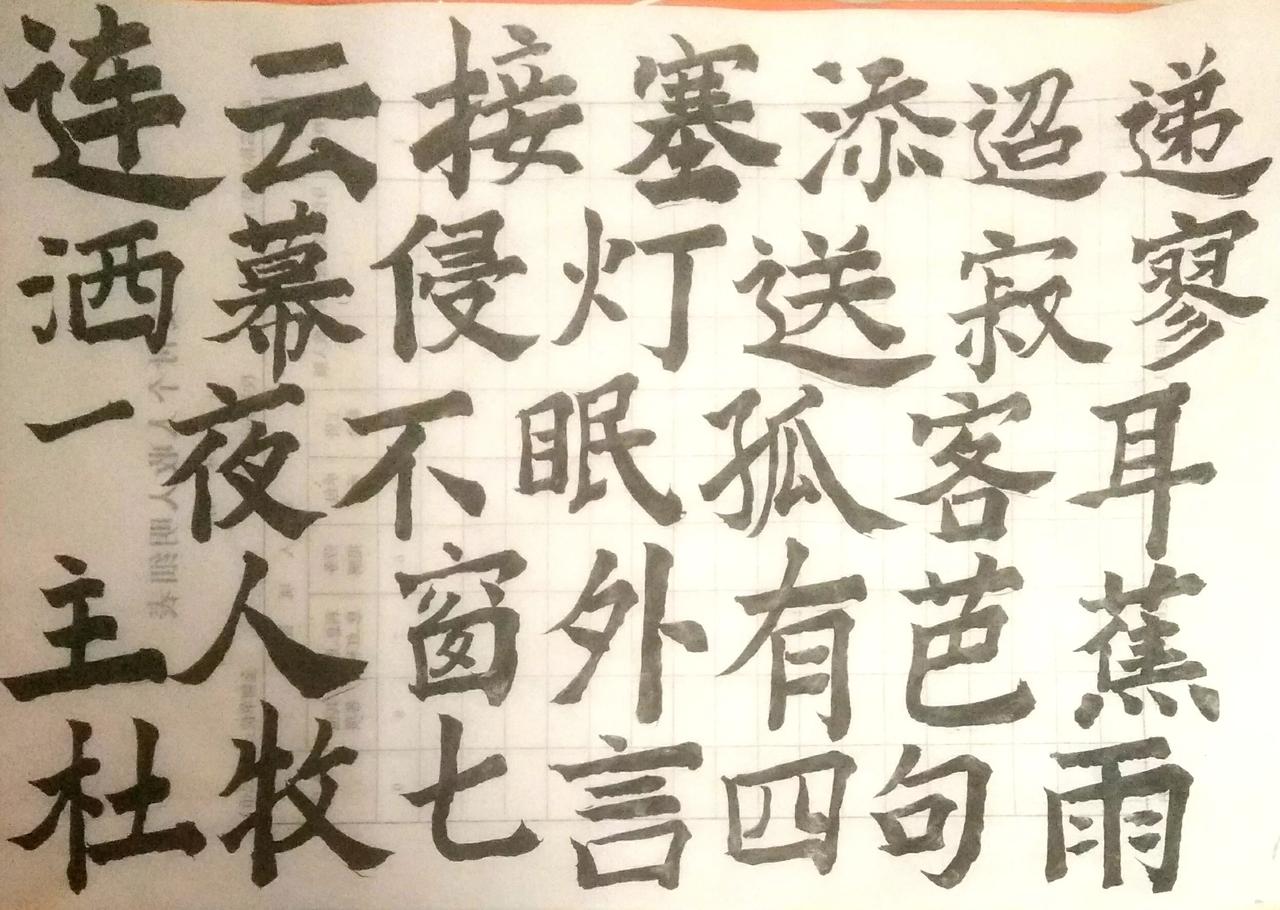 连云接塞添迢递
洒幕侵灯送寂寥
一夜不眠孤客耳
主人窗外有芭蕉
杜牧七言四句雨